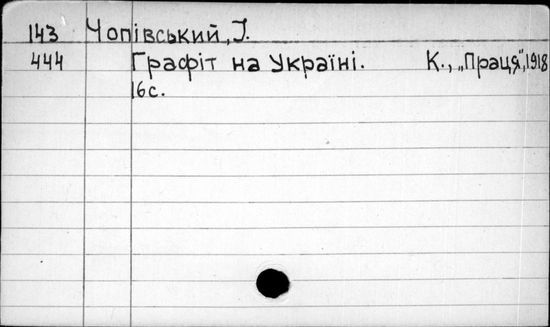 143 Чопівський, І.
444 Графіт на Україні. К., „Праця", 1918
16 с.